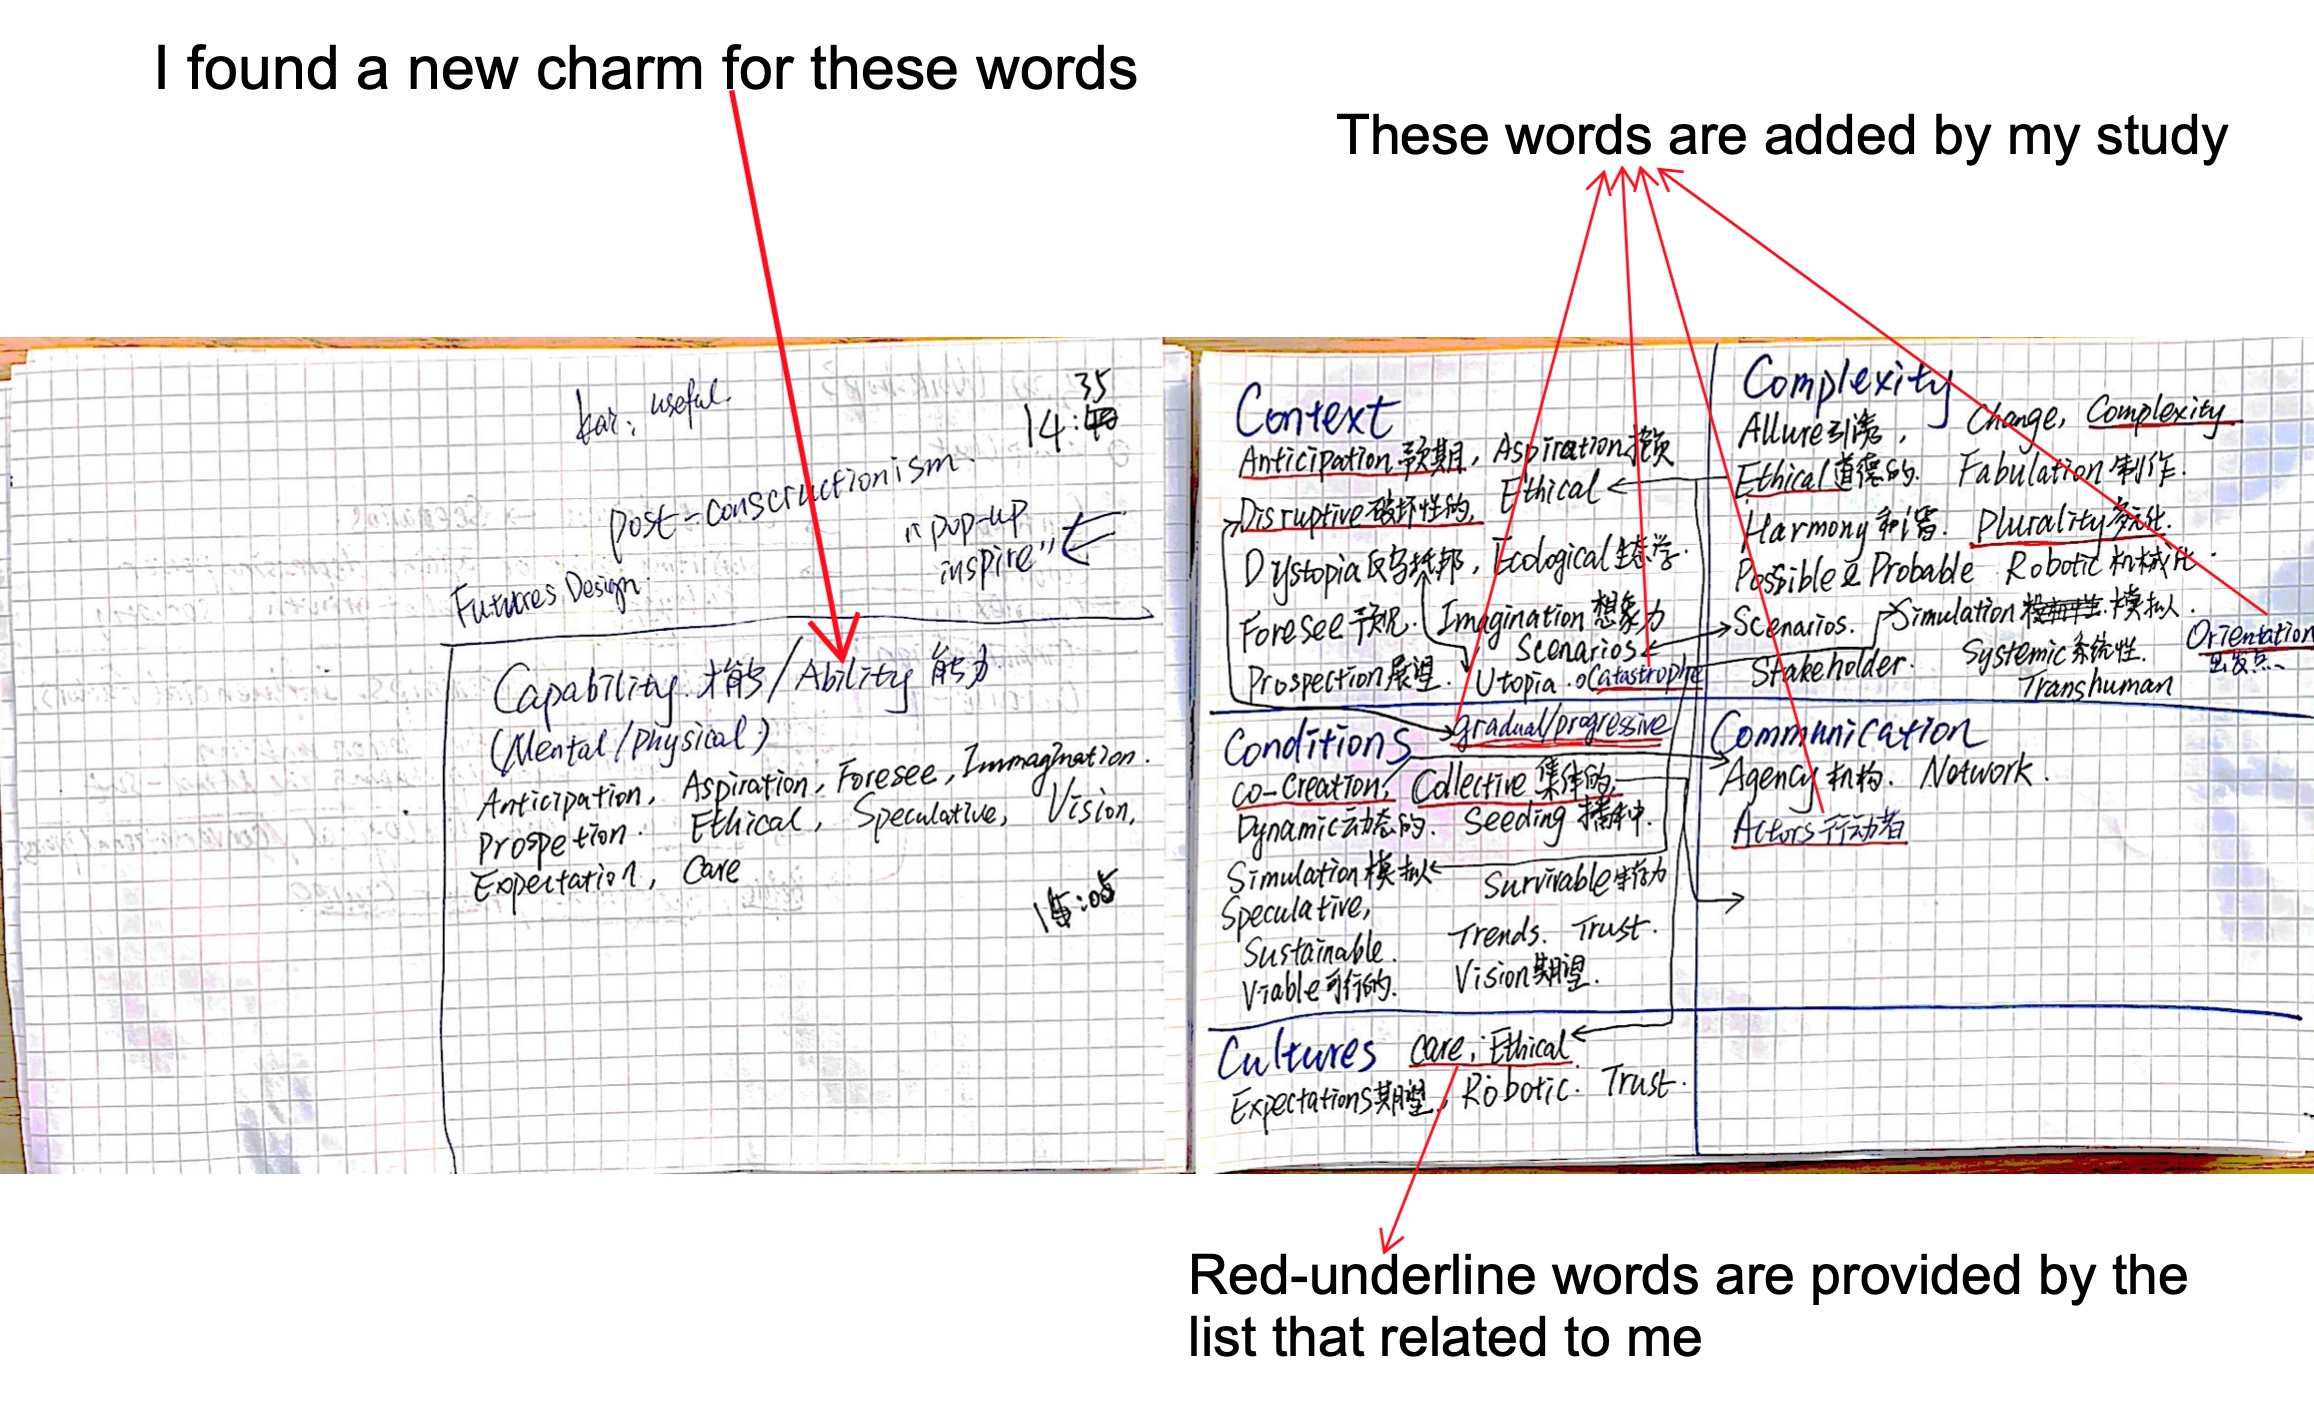 I found a new charm for these words
These words are added by my study
kar: useful.
35
14:
post-conscructionism.
"pop-up
inspire"
Futures Design.
Capability 才能/Ability 能力
(Mental/physical)
Anticipation, Aspiration, Foresee, Immagination.
Prospetion. Ethical, Speculative, Vision,
Expectation, Care
15:05
Context
Anticipation 预期, Aspiration
Disruptive 破坏性的, Ethical
Dystopia 反乌托邦, Ecological 生态学.
Foresee 预见. Imagination 想象力
Scenarios
Prospection 展望. Utopia. Catastrophe
Complexity
Allure 引诱, Change, Complexity
Ethical 道德的. Fabulation 制作.
Harmony 和谐. Plurality 多元化.
Possible & Probable Robotic 机械化.
Scenarios. Simulation 模拟.
Stakeholder. Systemic 系统性. Orientation
Transhuman 出发点、
Conditions gradual/progressive
Co-Creation, Collective 集体的
Dynamic 动态的. Seeding 播种.
Simulation 模拟 Survivable 生存力
Speculative,
Sustainable. Trends. Trust.
Viable 可行的. Vision 期望.
Communication
Agency 机构. Network.
Actors 行动者
Cultures Care, Ethical
Expectations 期望, Robotic. Trust.
Red-underline words are provided by the
list that related to me